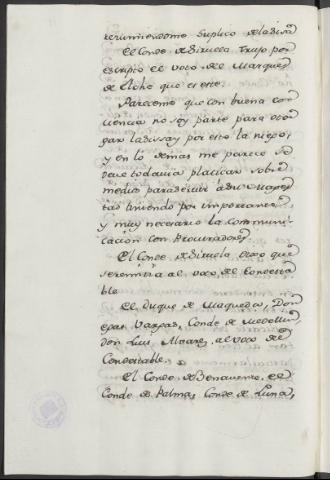 resumiendome suplico dela disa
El Conde de Siruela trujo por
escripto el voto del Marques
de Elche que es este
Pareceme que con buena con
ciencia no soy parte para otor
gar la sissa y por esto la niego,
y en lo demas me parece se
deve todavia platicar sobre
medio para servir á Su Mages
tad teniendo por importante
y muy necesario la communi-
cacion con Procuradores
El Conde de Siruela dixo que
se remitia al voto del Condesta
ble
El Duque de Maqueda, Don
Vargas, Conde de Medellin,
don Luis Alvarez, al voto del
Condestable.
El Conde de Benavente, el
Conde de Palma, Conde de Luna,